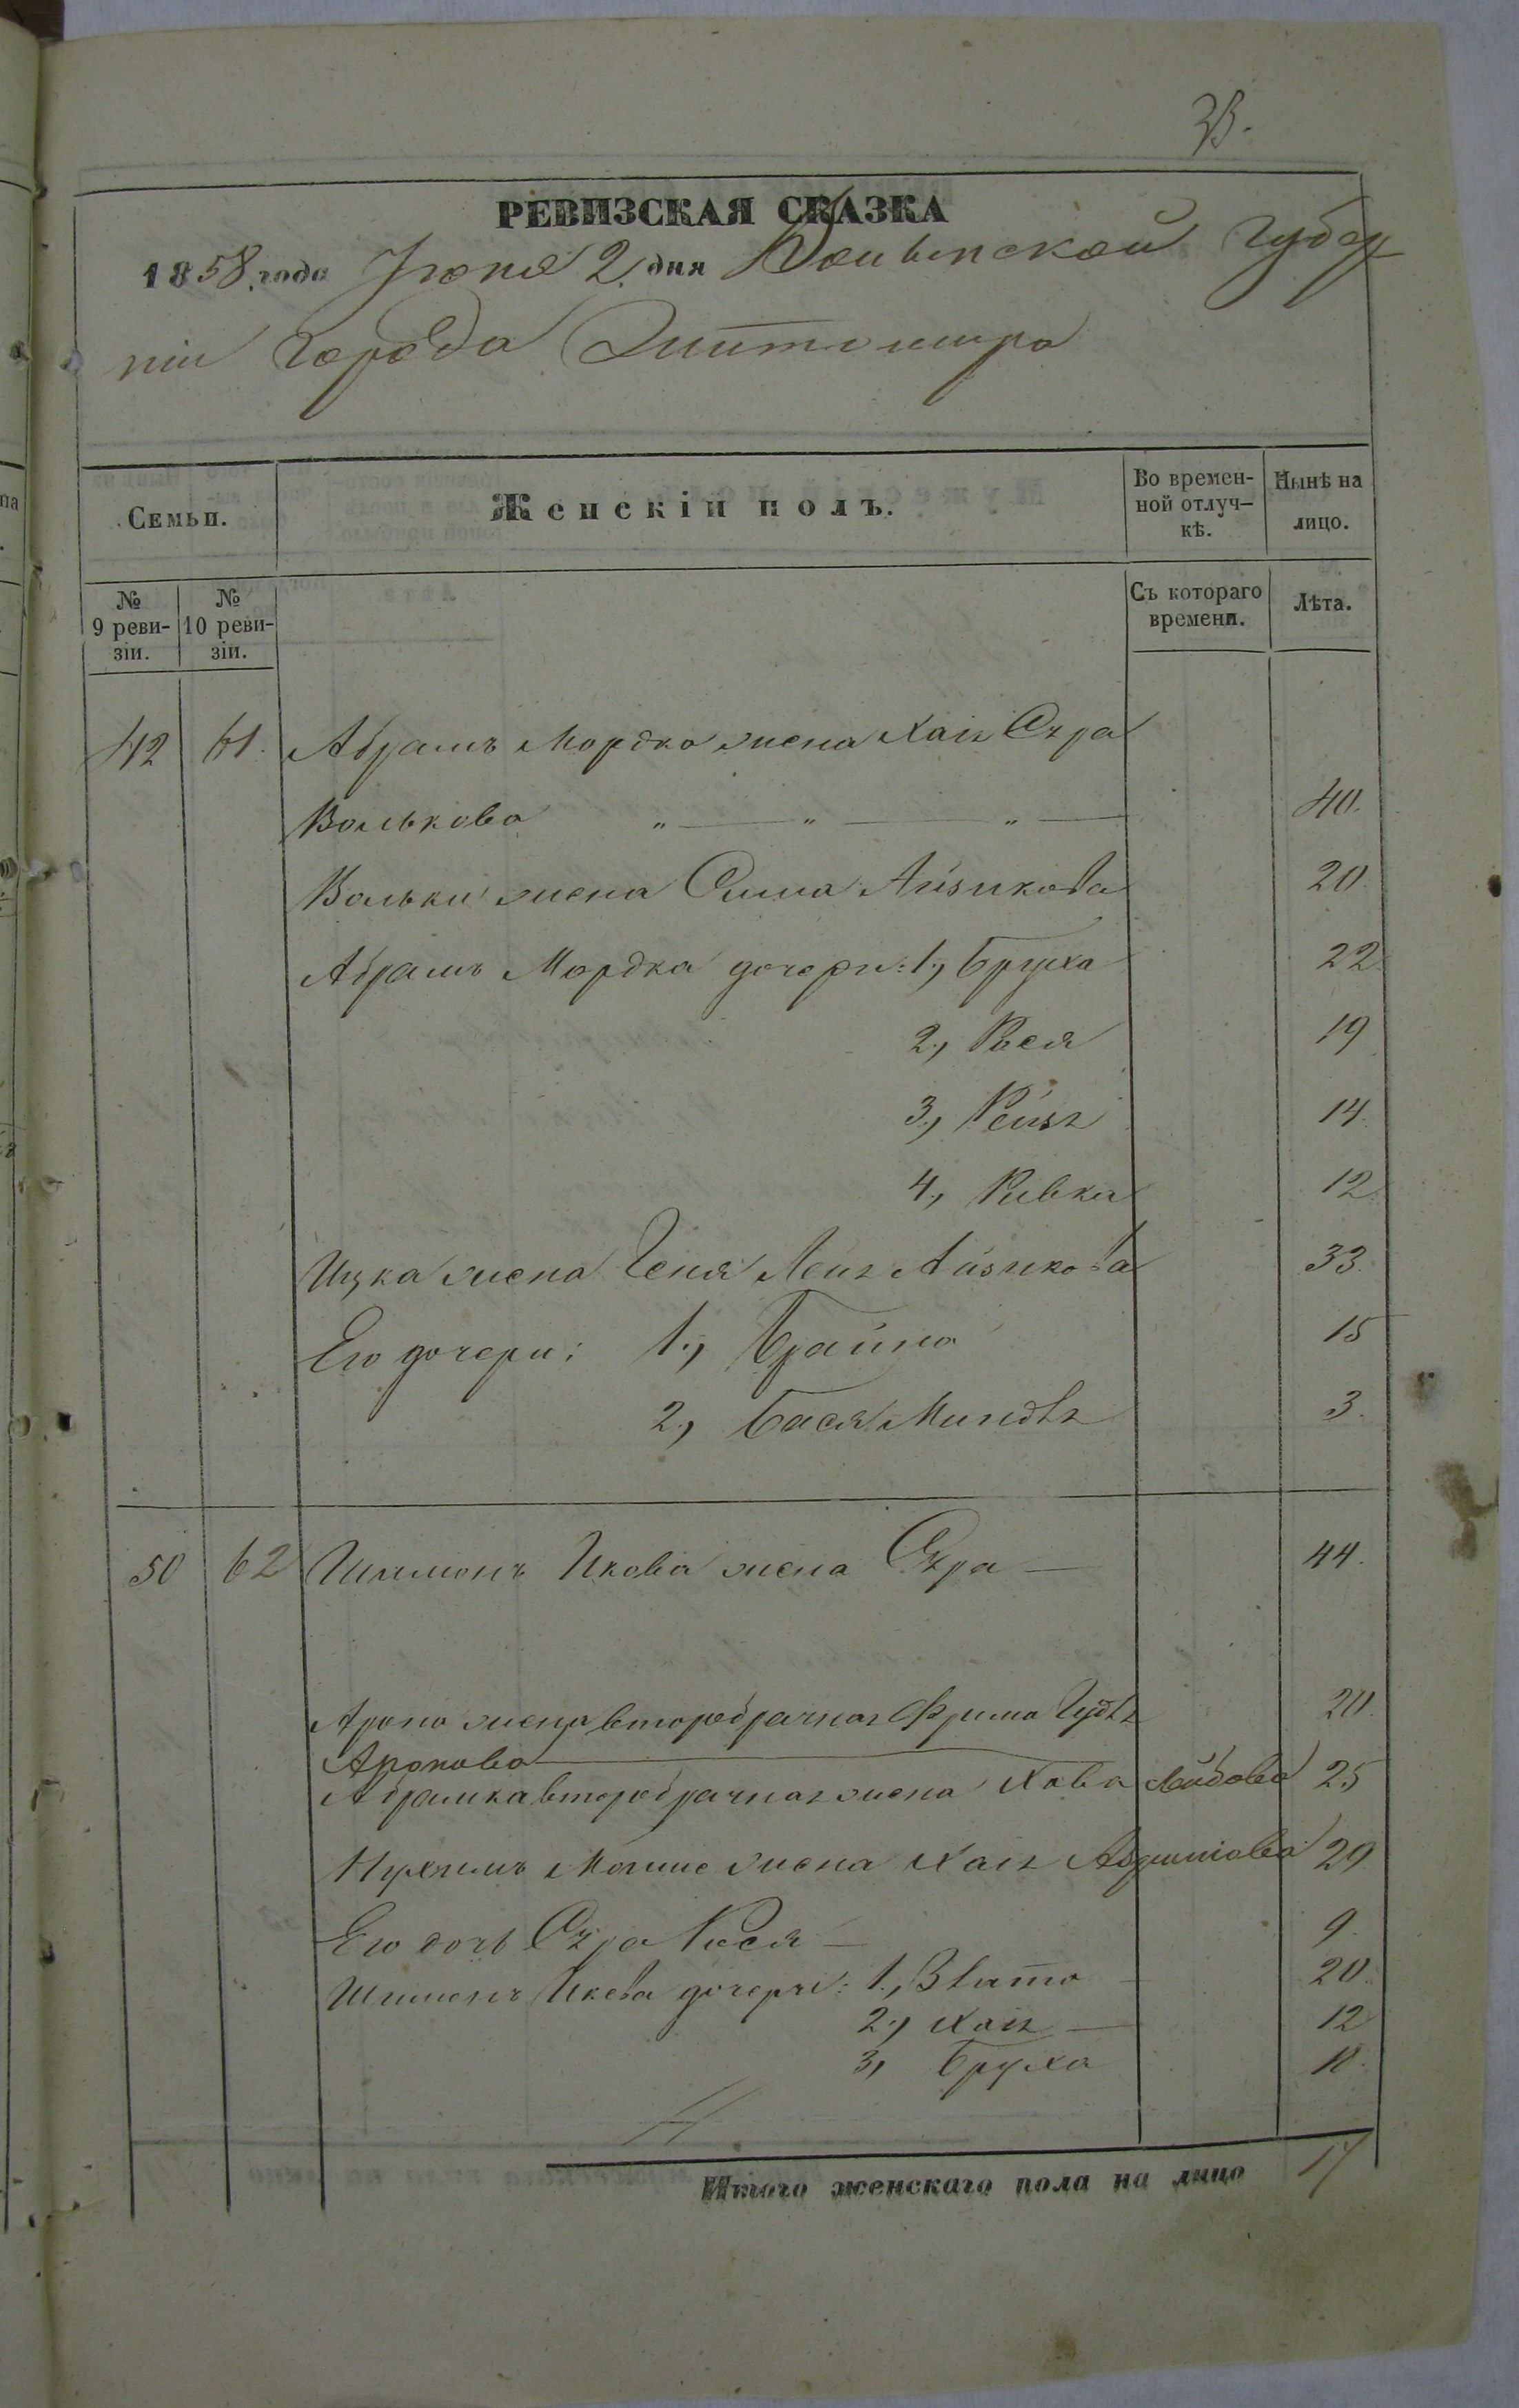 35.
РЕВИЗСКАЯ СКАЗКА
1858. года Іюня 2. дня Волынской Губер
ніи Города Житомира
Семьи.
Женскій полъ.
Во времен-
ной отлуч-
кѣ.
Нынѣ на
лицо.
№
9 реви-
зіи.
№
10 реви-
зіи.
Съ котораго
времени.
Лѣта.
42 61. Абрамъ Мордко жена Хая Сура
Волькова " — " — " — 40.
Вольки жена Сима Айзикова 20.
Абрамъ Мордка дочери: 1., Бруха 22.
2., Рося 19
3., Рейзя 14.
4., Ривка 12.
Ицка жена Геня Лея Айзикова 33.
Его дочери: 1., Брайна 15
2., Бася Миндля 3.
50 62 Шимонъ Икова жена Сура — 44.
Арона жена второбрачная Фрима Гудля 20.
Аронова
Абрамка второбрачная жена Хава Лейбова 25
Нухимъ Мошие жена Хая 29
Его дочь Сура Рося — 9.
Шимонъ Икова дочери: 1., Злата 20.
2., Хая — 12
3, Бруха 10.
Итого женскаго пола на лицо 17